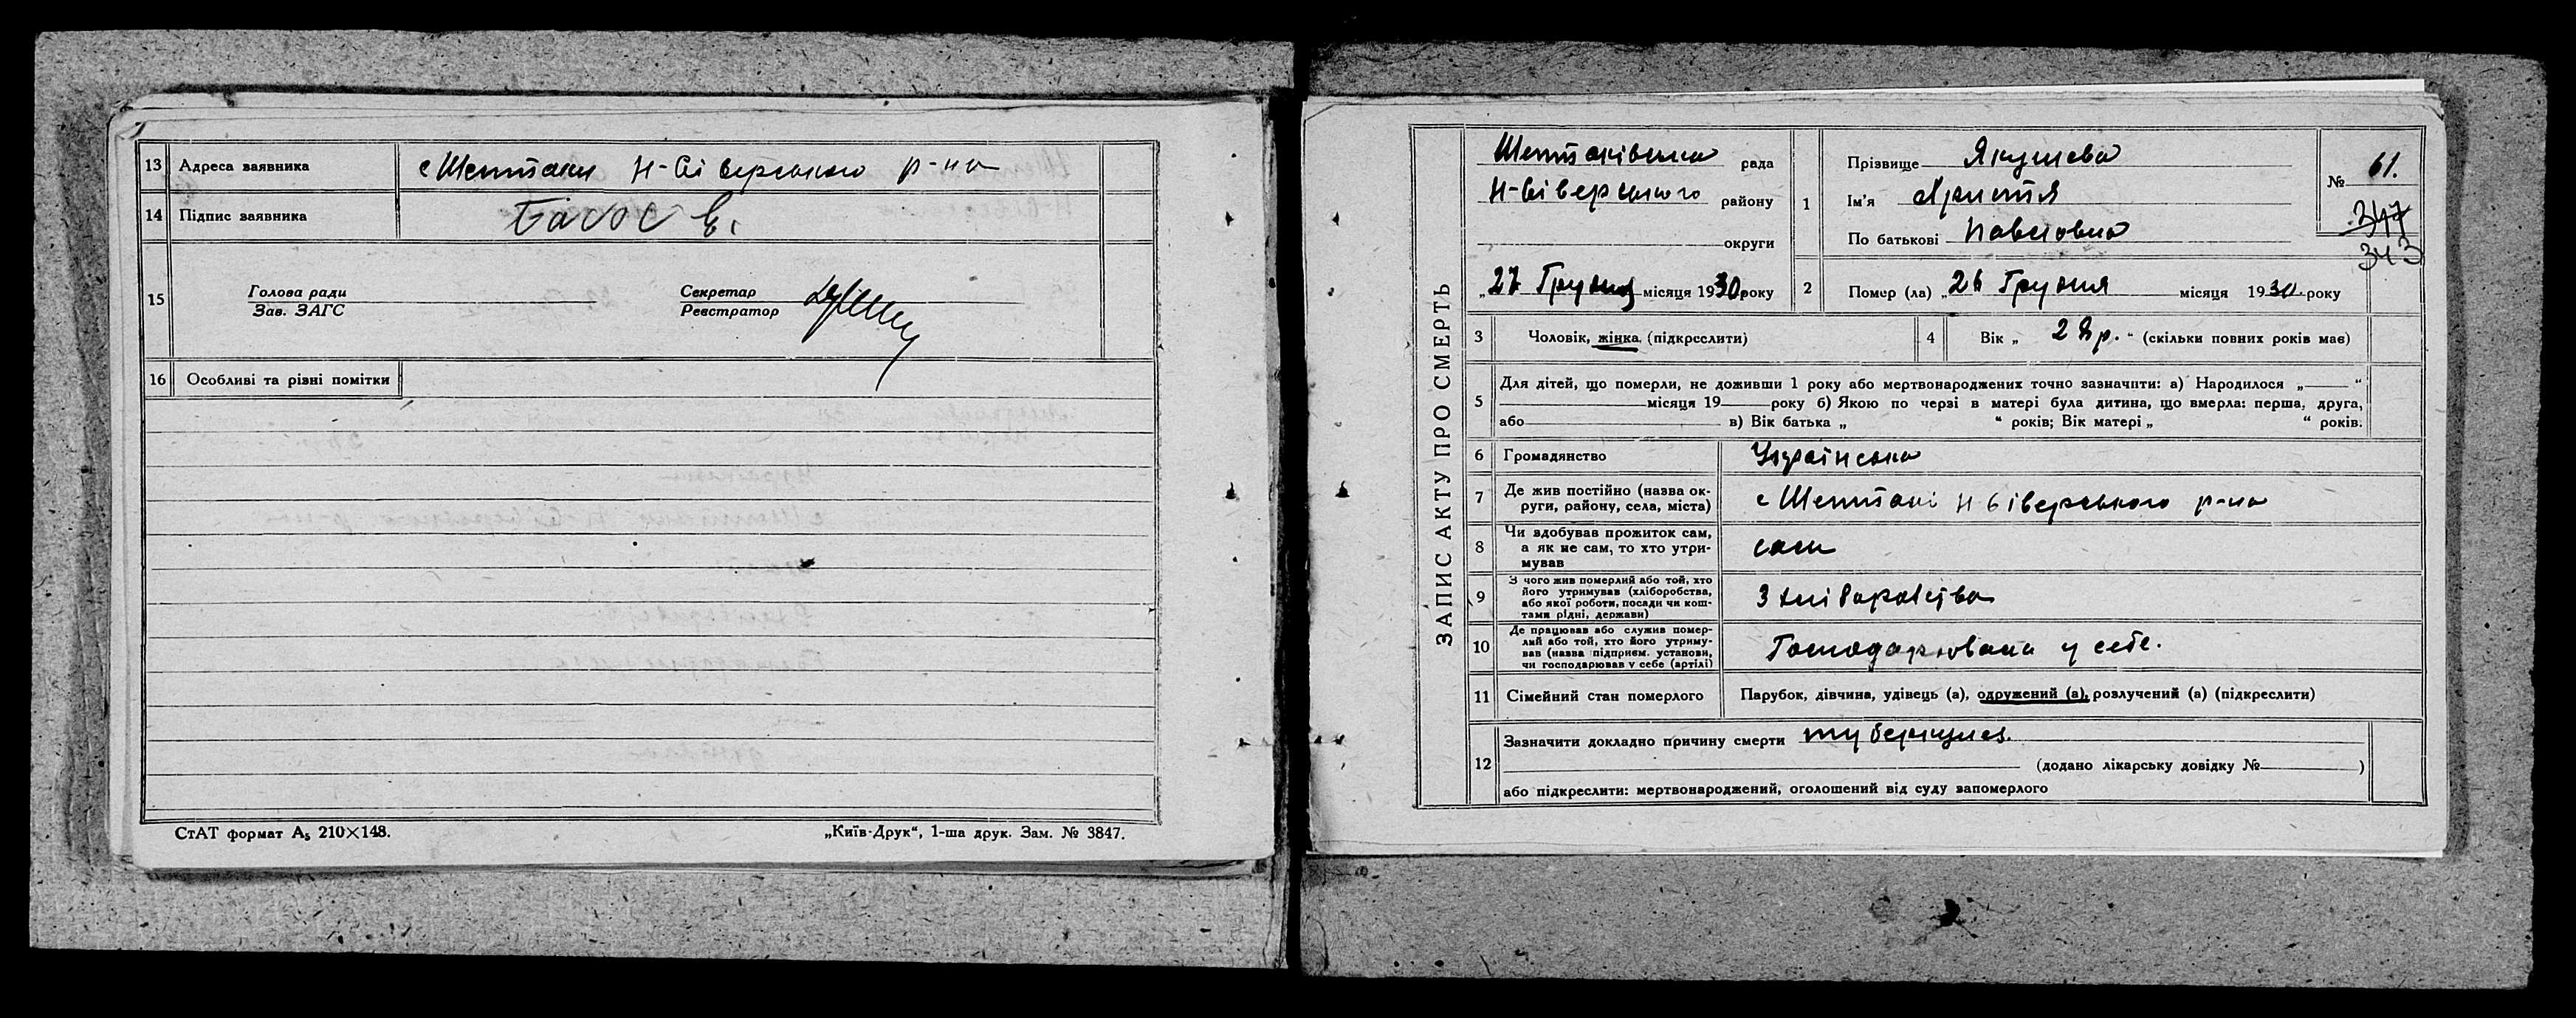 13 Адреса заявника с Шептаки Н-Сіверського р-на
14 Підпис заявника Басос Е.
15 Голова ради
Зав. ЗАГС
Секретар
Реєстратор
16 Особливі та різні помітки
СтАТ формат А₅ 210×148.
„Київ-Друк“, 1-ша друк. Зам. № 3847.
ЗАПИС АКТУ ПРО СМЕРТЬ
Шептаківська рада
Н-Сіверського району
округи
„27 Грудня місяця 1930 року
1 Прізвище Якушева
Ім'я Христя
По батькові Павловна
№ 61.
347
343
2 Помер (ла) „26 Грудня місяця 1930 року
3 Чоловік, жінка (підкреслити)
4 Вік „ 28 р. “ (скільки повних років мав)
5 Для дітей, що померли, не доживши 1 року або мертвонароджених точно зазначити: а) Народилося „ “
місяця 19 року б) Якою по черзі в матері була дитина, що вмерла: перша, друга,
або в) Вік батька „ “ років; Вік матері „ “ років.
6 Громадянство Українська
7 Де жив постійно (назва округи, району, села, міста) с Шептакі Н Сіверського р-на
8 Чи здобував прожиток сам, а як не сам, то хто утримував сам
9 З чого жив померлий або той, хто його утримував (хліборобства, або якої роботи, посади чи коштами рідні, держави) З хліборобства
10 Де працював або служив померлий або той, хто його утримував (назва підприєм. установи, чи господарював у себе (артілі) Господарювала у себе.
11 Сімейний стан померлого Парубок, дівчина, удівець (а), одружений (а), розлучений (а) (підкреслити)
12 Зазначити докладно причину смерти туберкулез.
(додано лікарську довідку № )
або підкреслити: мертвонароджений, оголошений від суду запомерлого